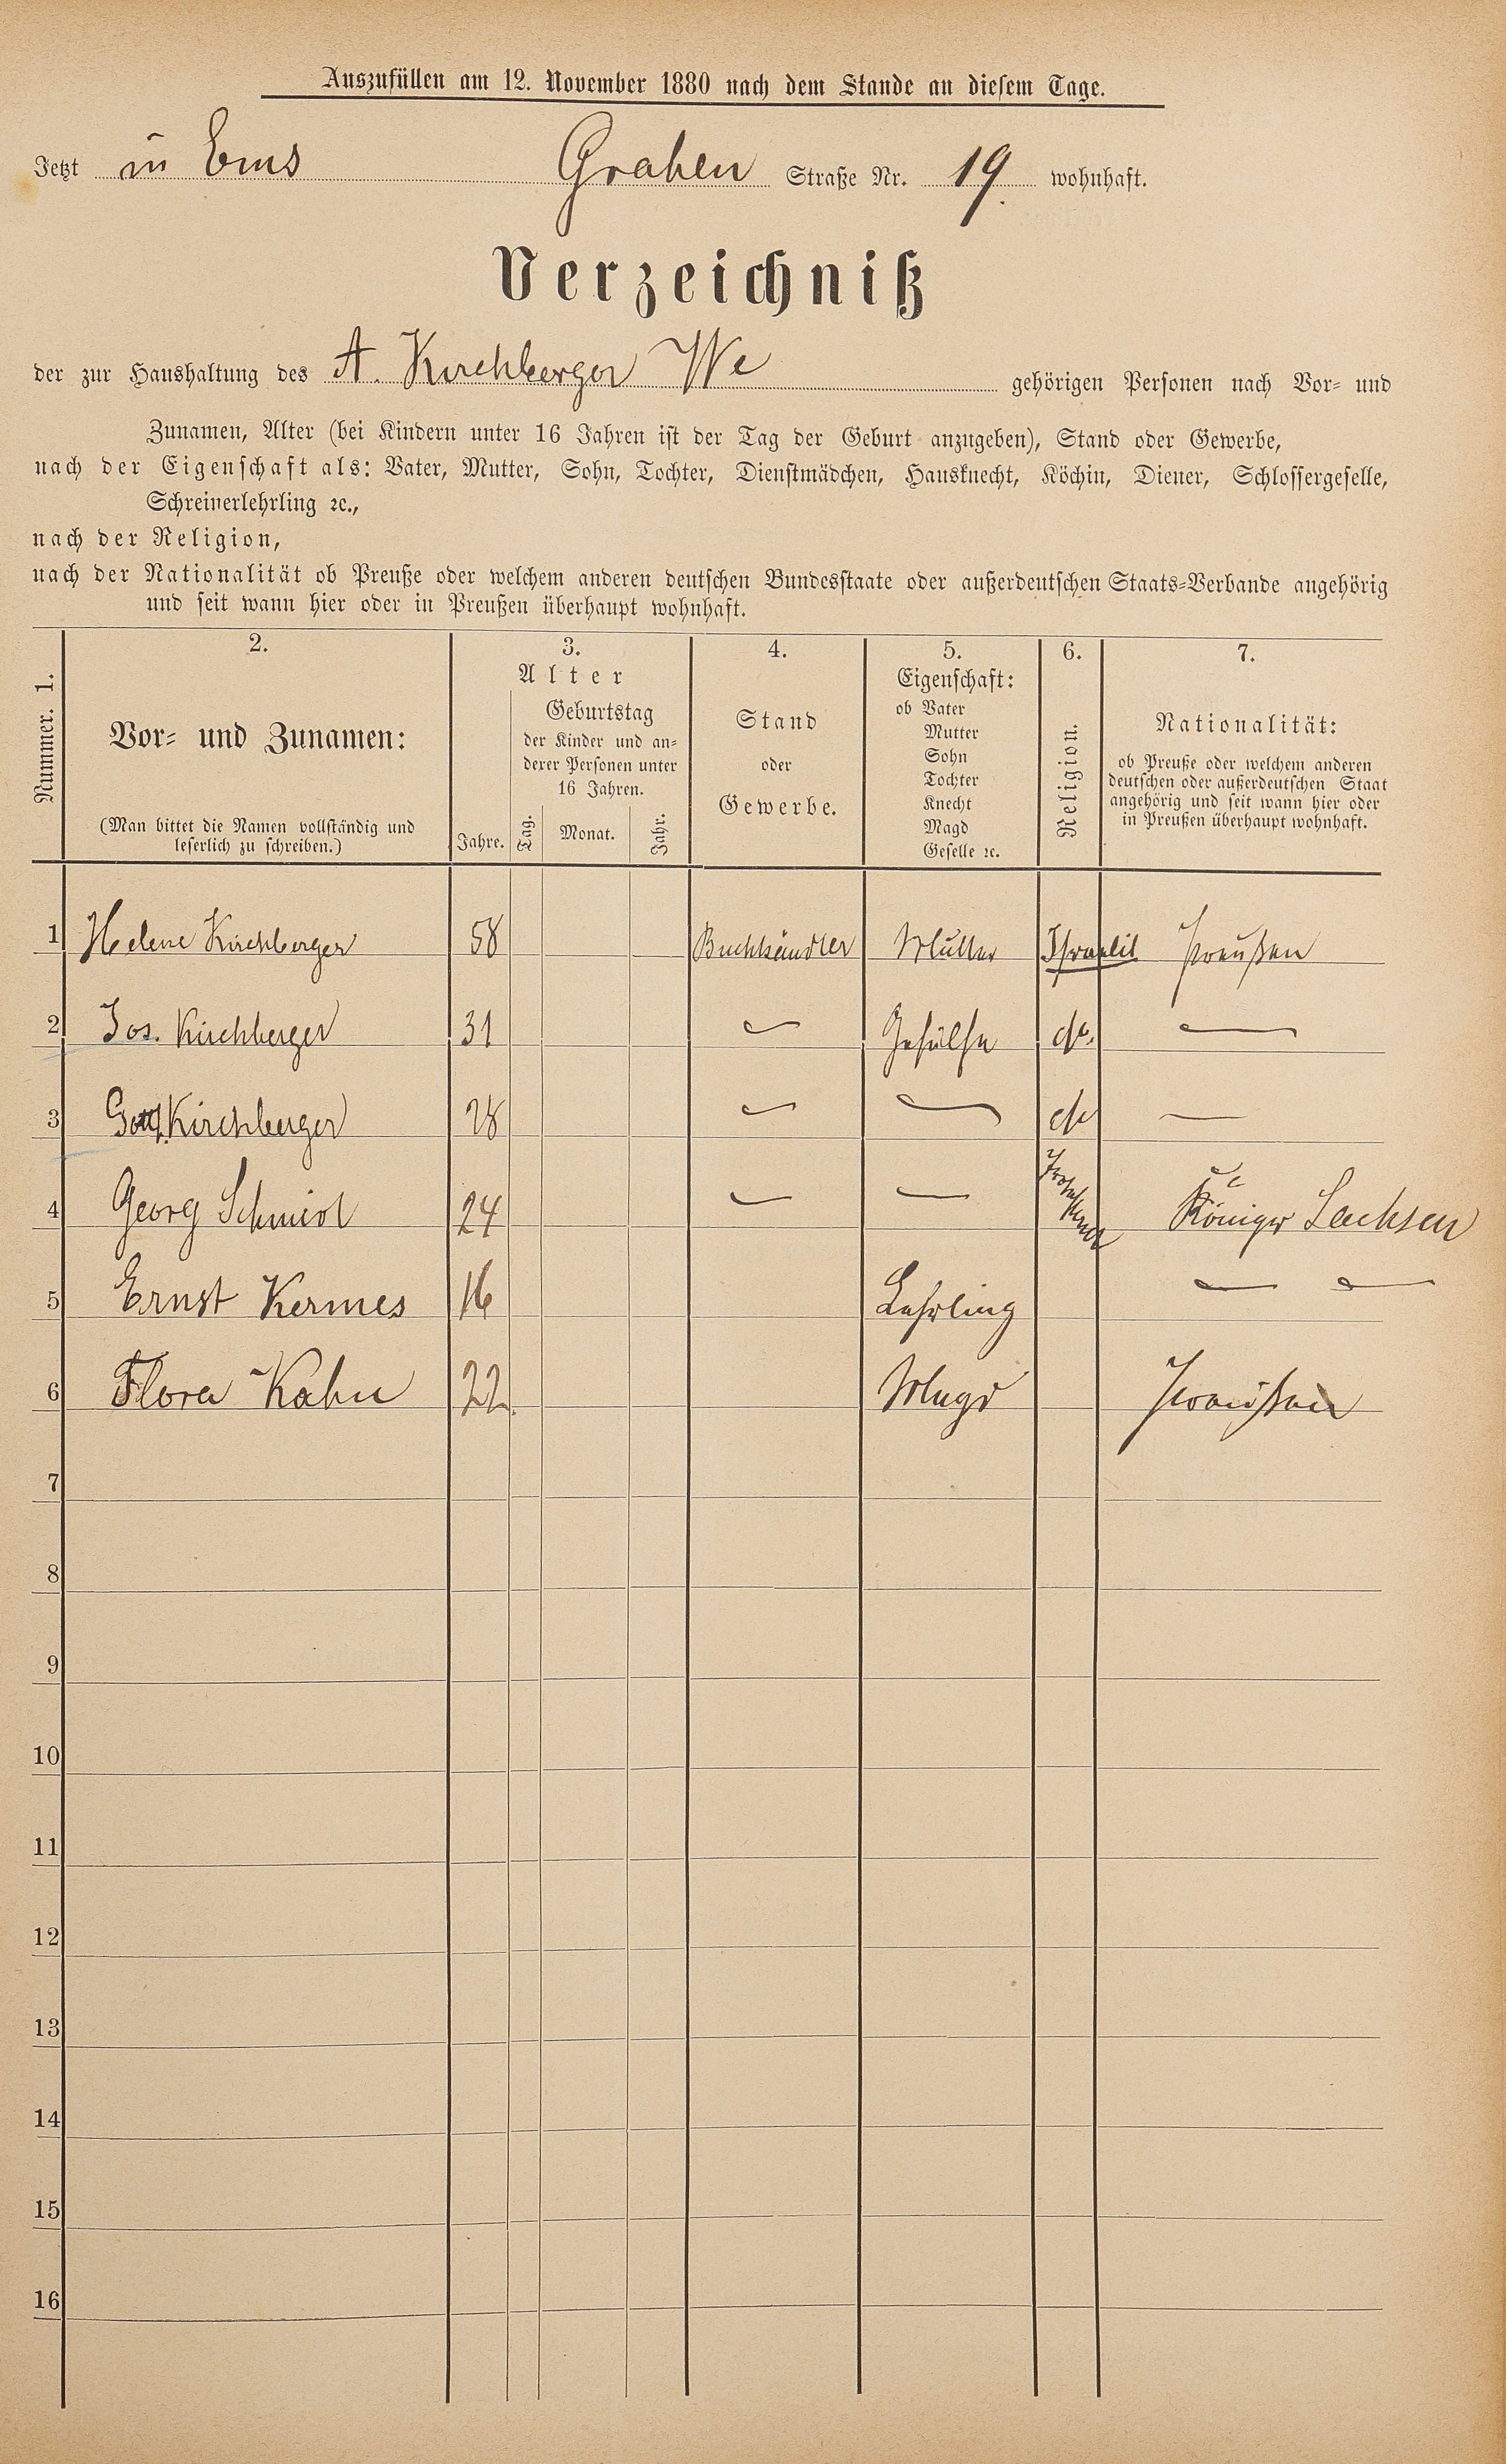 Auszufüllen am 12. November 1880 nach dem Stande an diesem Tage.
Jetzt in Ems Graben Straße Nr. 19. wohnhaft.
Verzeichniß
der zur Haushaltung des A. Kirchberger We gehörigen Personen nach Vor- und
Zunamen, Alter (bei Kindern unter 16 Jahren ist der Tag der Geburt anzugeben), Stand oder Gewerbe,
nach der Eigenschaft als: Vater, Mutter, Sohn, Tochter, Dienstmädchen, Hausknecht, Köchin, Diener, Schlossergeselle,
Schreinerlehrling ꝛc.,
nach der Religion,
nach der Nationalität ob Preuße oder welchem anderen deutschen Bundesstaate oder außerdeutschen Staats-Verbande angehörig
und seit wann hier oder in Preußen überhaupt wohnhaft.
Nummer. 1.
2.
Vor- und Zunamen:
(Man bittet die Namen vollständig und
leserlich zu schreiben.)
3.
Alter
Jahre.
Geburtstag
der Kinder und an-
derer Personen unter
16 Jahren.
Tag. Monat. Jahr.
4.
Stand
oder
Gewerbe.
5.
Eigenschaft:
ob Vater
Mutter
Sohn
Tochter
Knecht
Magd
Geselle ꝛc.
6.
Religion.
7.
Nationalität:
ob Preuße oder welchem anderen
deutschen oder außerdeutschen Staat
angehörig und seit wann hier oder
in Preußen überhaupt wohnhaft.
1 Helene Kirchberger 58 Buchhändler Mutter Israelit Preußen
2 Jos. Kirchberger 31 — Gehülfe do. —
3 Kirchberger 28 — — do —
4 Georg Schmidt 24 — — Königr Sachsen
5 Ernst Kermes 16 Lehrling — —
6 Flora Kahn 22. Magd Preußen
7
8
9
10
11
12
13
14
15
16